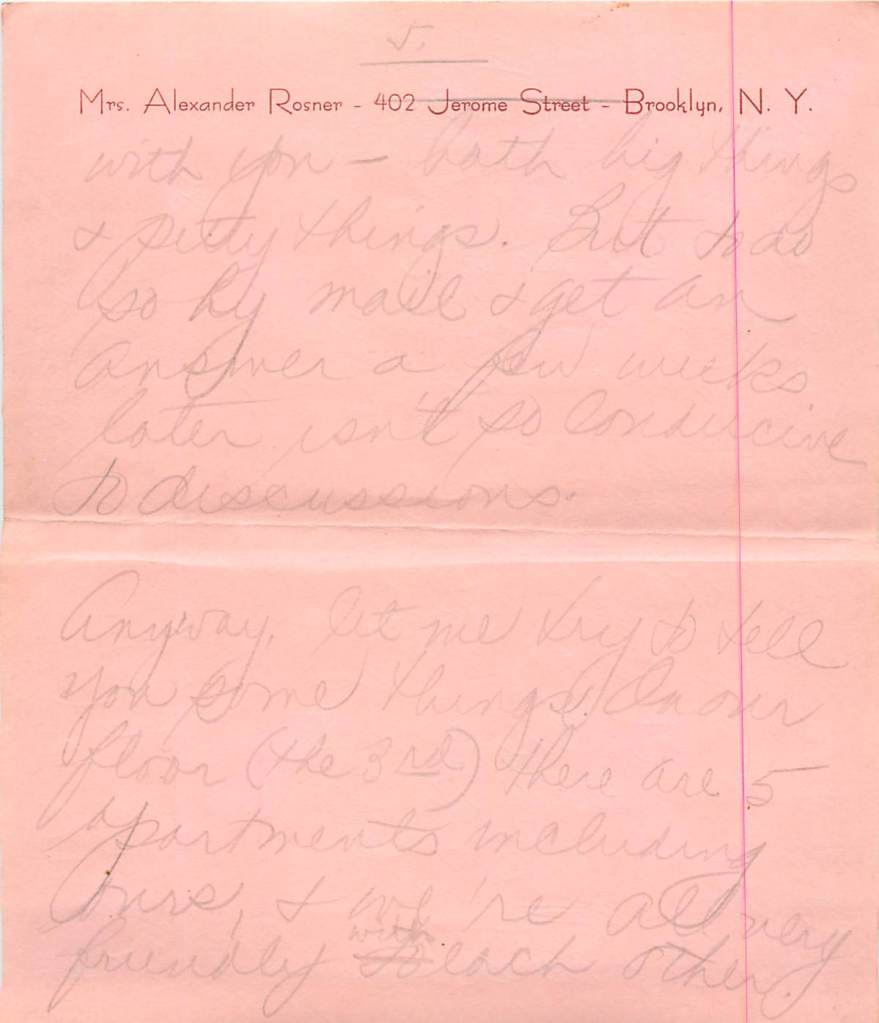 5.
Mrs. Alexander Rosner - 402 Jerome Street - Brooklyn, N. Y.
with you — both big things
& petty things. But to do
so by mail & get an
answer a few weeks
later isn't so conducive
to discussions.
Anyway, let me try to tell
you some things. On our
floor (the 3rd) there are 5
apartments including
ours, & we're all very
with
friendly to each other.